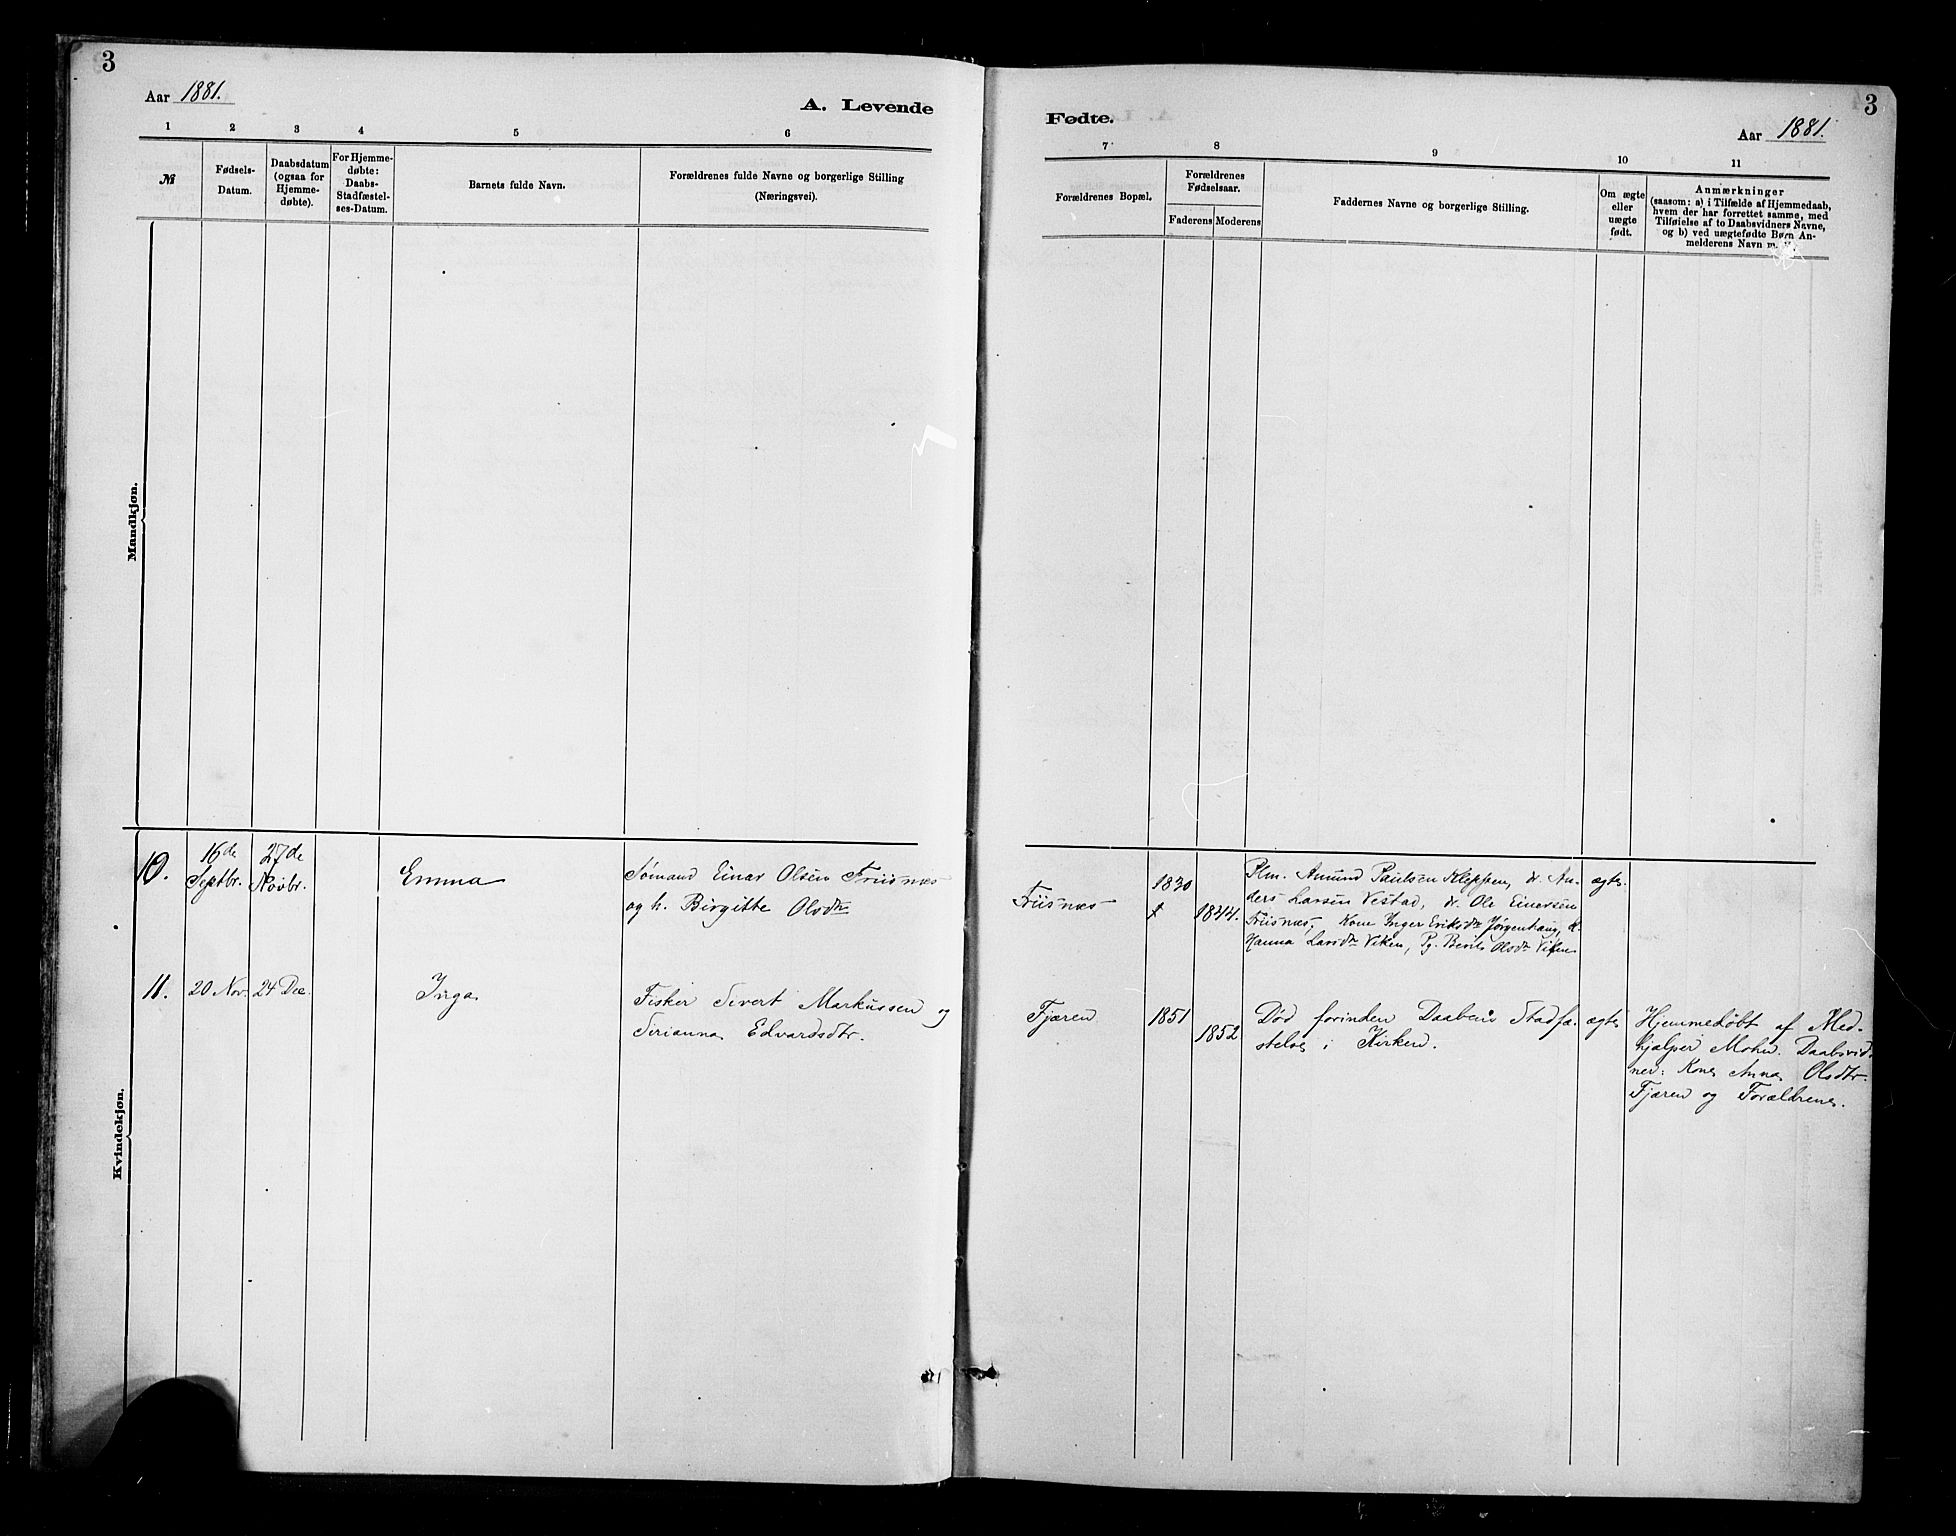 3
Aar 1881.
A. Levende
1 2 3 4 5 6
№
Fødsels-
Datum.
Daabsdatum
(ogsaa for
Hjemme-
døbte).
For Hjemme-
døbte:
Daabs-
Stadfæstel-
ses-Datum.
Barnets fulde Navn.
Forældrenes fulde Navne og borgerlige Stilling
(Næringsvei).
Mandkjøn.
10.
16de
Septbr.
27de
Novbr.
Emma
Sømand Einar Olsen Friisnæs
og h. Birgitte Olsdtr
11.
20 Nov.
24 Dec.
Inga
Fisker Sivert Markussen og
Serianna Edvardsdtr.
Kvindekjøn.
3
Fødte.
Aar 1881.
7 8 9 10 11
Forældrenes Bopæl.
Forældrenes
Fødselsaar.
Faderens Moderens
Faddernes Navne og borgerlige Stilling.
Om ægte
eller
uægte
født.
Anmærkninger
(saasom: a) i Tilfælde af Hjemmedaab,
hvem der har forrettet samme, med
Tilføielse af to Daabsvidners Navne,
og b) ved uægtefødte Børn An-
melderens Navn m.
Friisnæs
1830
1844.
Plm. Amund Paulsen Kleppen, dr. An-
ders Larsen Vestad, dr. Ole Einersen
Friisnæs, Kone Inger Eriksdtr Jørgenhaug,
Hanna Larsdtr Viken, Pg. Berit Olsdtr Viken
ægte.
Fjæren
1851
1852
Død forinden Daabens Stadfæ-
stelse i Kirken.
ægte
Hjemmedøbt af Med-
hjælper Mohn. Daabsvid-
ner: Kone Anna Olsdtr.
Fjæren og Forældrene.